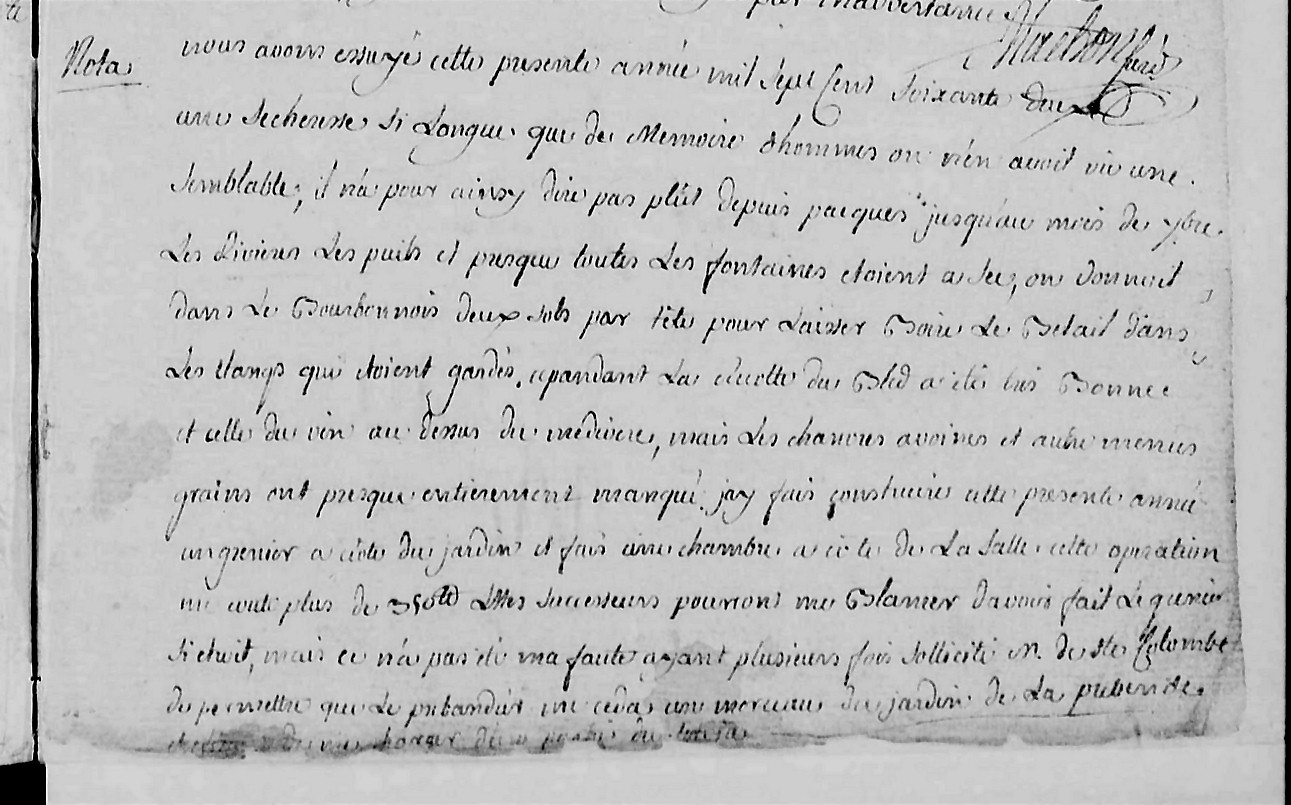 par inadvertance
Nota
nous avons essuyé cette presente année mil sept cent soixante deux
une secheresse si longue que de memoire d'hommes on n'en avoit vu une
semblable; il n'a pour ainsy dire pas plût depuis pacques jusqu'au mois de 7bre
Les Rivieres Les puits et presque toutes Les fontaines etoient a sec, on donnoit
dans Le Bourbonnois deux sols par tête pour Laisser Boire Le Betail dans
Les Etangs qui etoient gardés, cepandant La recolte du Bled a été tres Bonne
et celle du vin au dessus du mediocre, mais Les chanvres avoines et autre menus
grains ont presque entierement manqué. j'ay fais construire cette presente année
un grenier a côté du jardin et fais une chambre a côté de La Salle. cette operation
me coute plus de 350lt Mes successeurs pourront me Blamer davoir fait Le grenier
si etroit, mais ce n'a pas été ma faute ayant plusieurs fois sollicité M. de Ste Colombe
de permettre que Le prebandier me ceda un morceau du jardin de La prebende.
de me charger d'une partie du